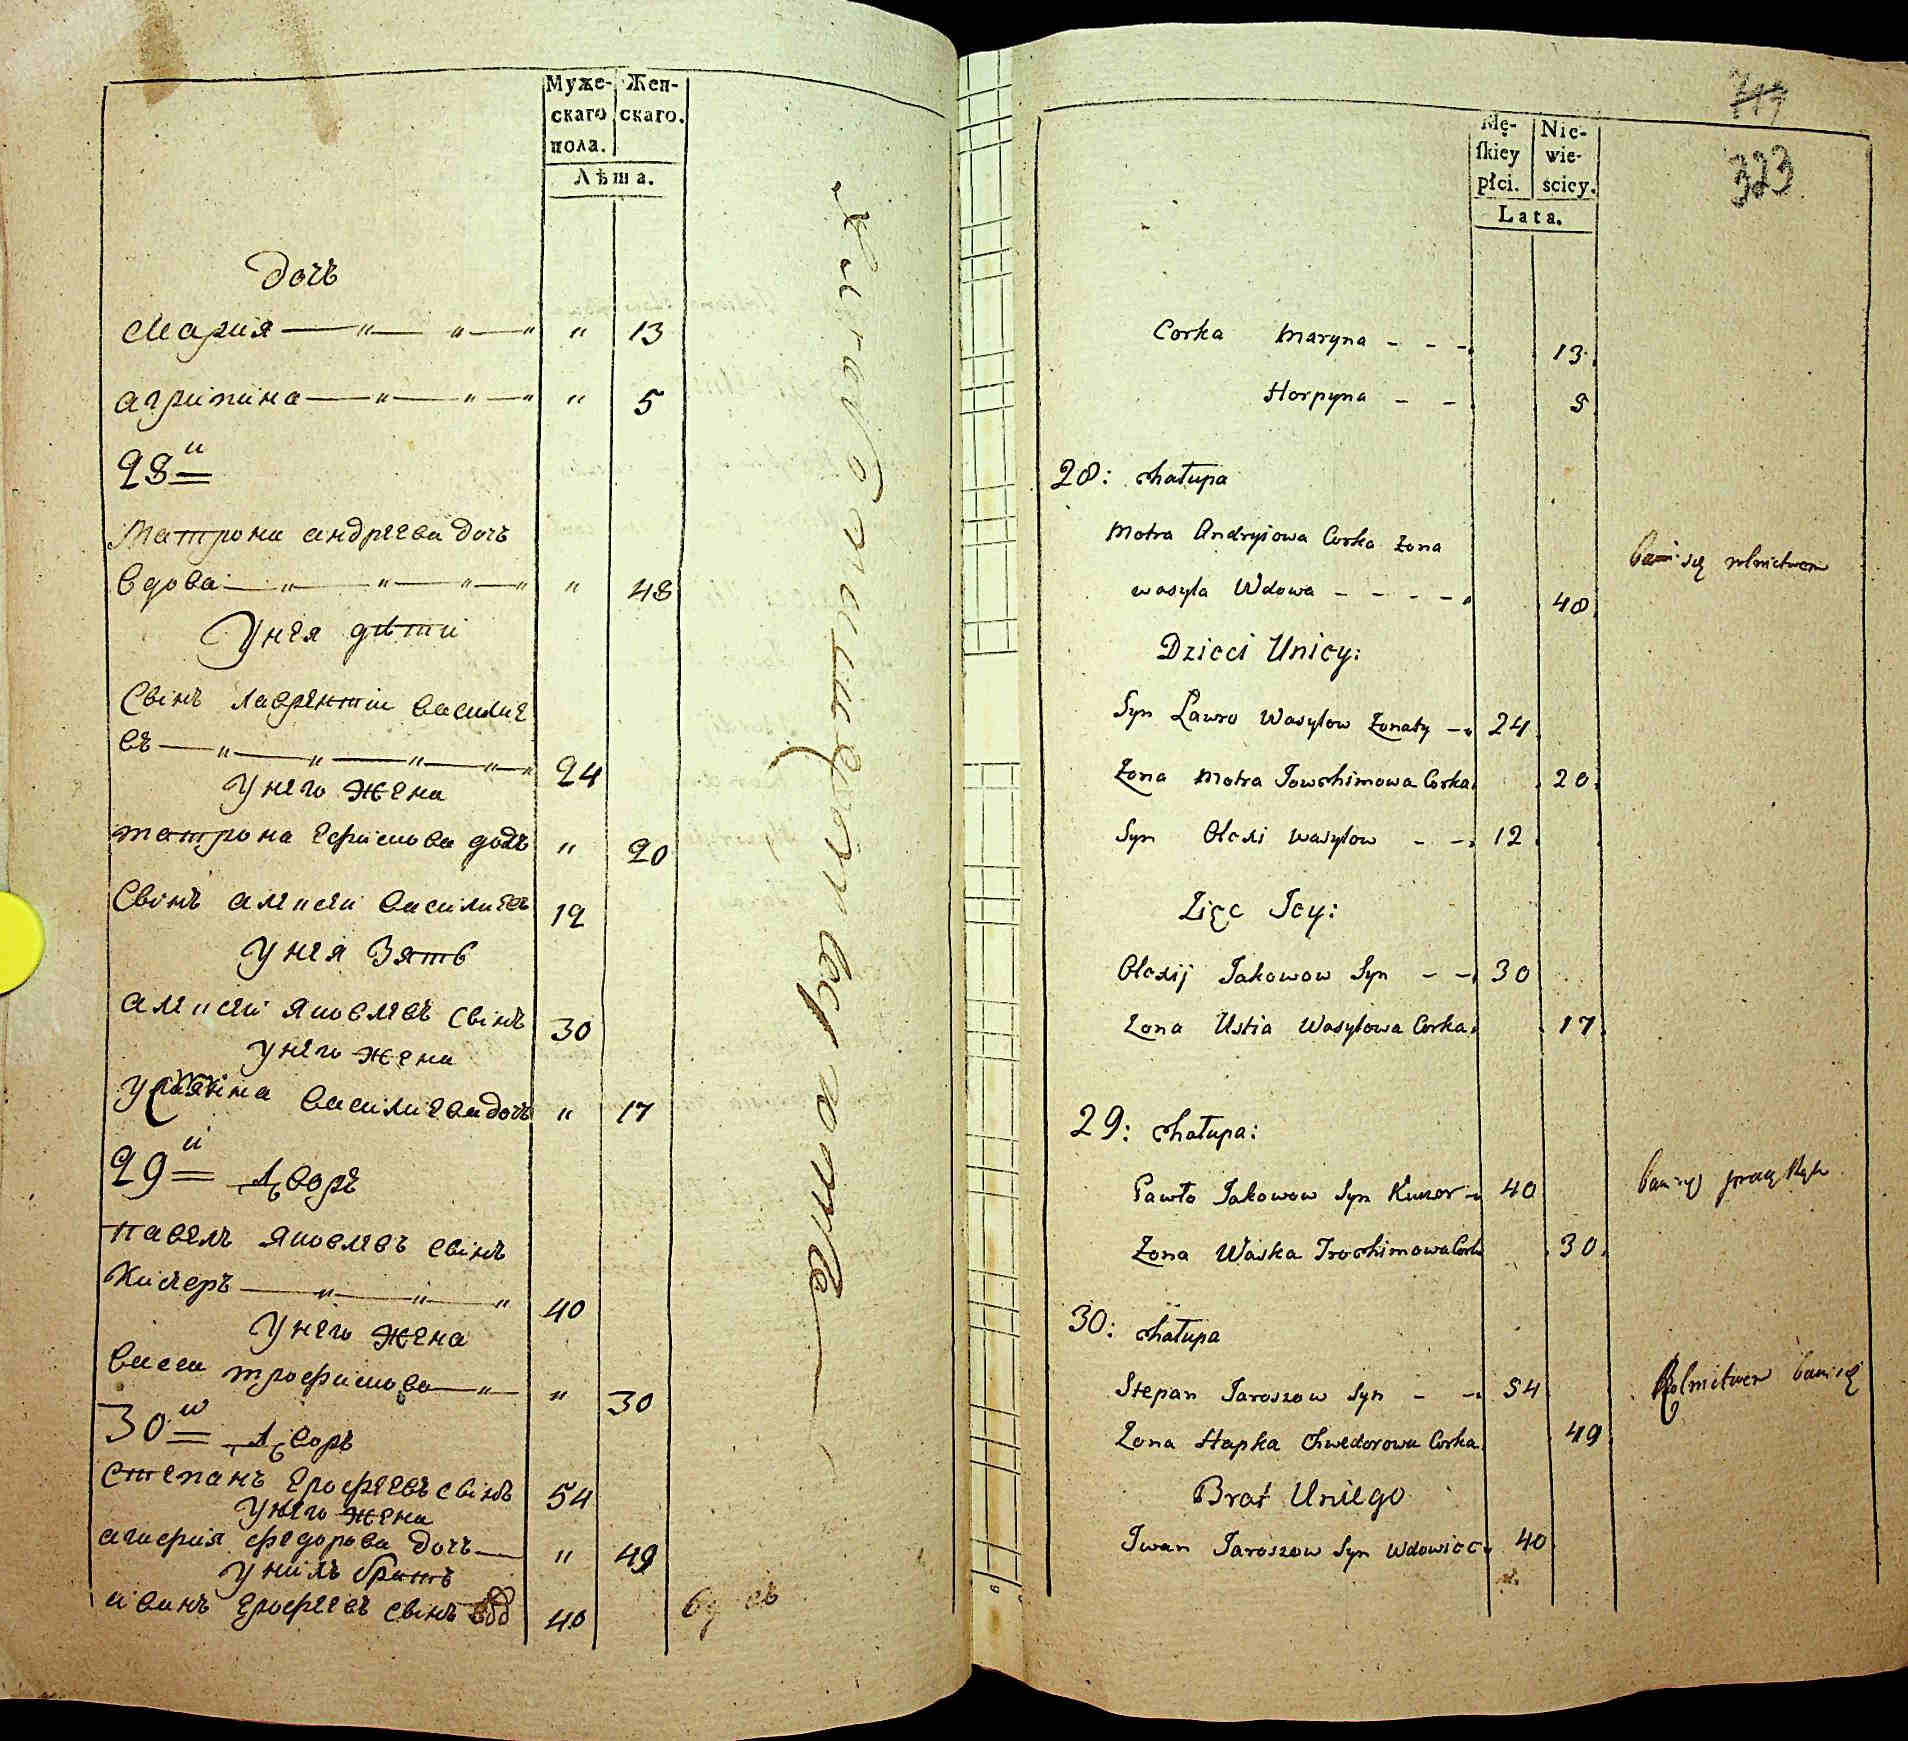 Муже-
скаго
пола.
Жен-
скаго.
Лѣта.
дочь
Мария — " — " — " " 13
агрипина — " — " — " " 5
28й
Матрона андреева дочь
вдова — " — " — " — " " 48
У нея дѣти
Свінъ лаврентии василие
въ — " — " — " — " 24
У него жена
матрона ефимова дочь " 20
Свінъ алексей василиевъ 12
У нея Зять
алексей яковлевъ свінъ 30
У него жена
василиева дочь " 17
29й Дворъ
павелъ яковлевъ свінъ
— " — " — " 40
У него жена
васса трофимова — " — " 30
30й Дворъ
Степанъ ерофеевъ свінъ 54
У него жена
федорова дочь — " 49
У них братъ
иванъ ерофеевъ свінъ вдо 40
Mę-
skiey
płci.
Nie-
wie-
sciey.
Lata.
719
323
Corka Maryna - - - 13.
Horpyna - - 5
28: chałupa
Motra Andryiowa Corka żona
wasyla Wdowa - - - - 48
bawi się rolnictwem
Dzieci Unicy:
Syn Lawro Wasylow żonaty - 24
żona Motra Jowchimowa Corka 20
Syn Olexi wasylow - - 12
Zięc Jey:
Olexij Jakowow Syn - - 30
żona Ustia Wasylowa Corka 17
29: chałupa:
Pawło Jakowow Syn - 40
żona Waska Trochimowa Cork 30
30: chałupa
Stepan Jaroszow Syn - - 54
Rolnictwem bawi się
żona Hapka Chwedorowa Corka 49
Brat Uniego
Iwan Jaroszow Syn Wdowiec 40